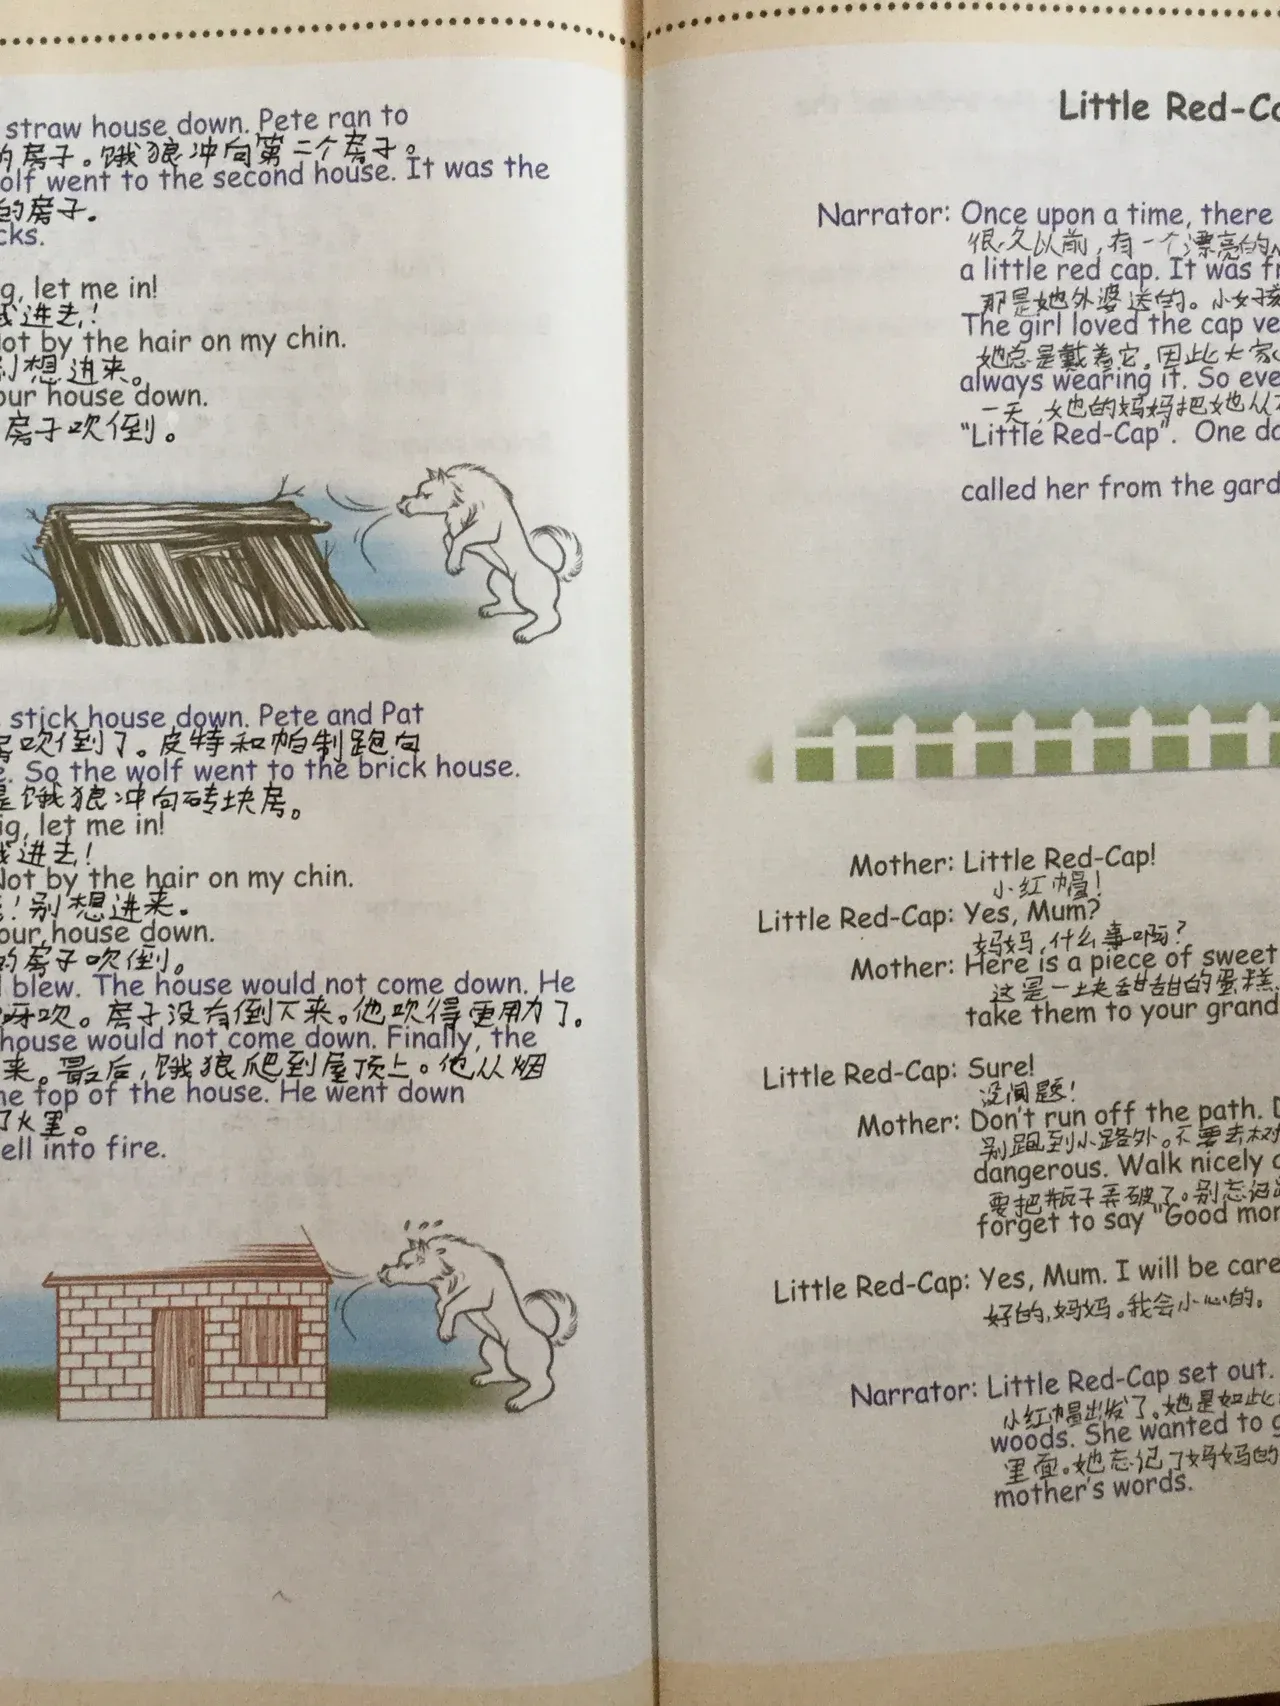 straw house down. Pete ran to
的房子。饿狼冲向第二个房子。
olf went to the second house. It was the
的房子.
cks.
g, let me in!
我进去!
ot by the hair on my chin.
别想进来。
our house down.
房子吹倒。
stick house down. Pete and Pat
吹倒了。皮特和帕制跑向
e. So the wolf went to the brick house.
是饿狼冲向砖块房。
ig, let me in!
我进去!
Not by the hair on my chin.
!别想进来.
our house down.
的房子吹倒。
d blew. The house would not come down. He
呀吹。房子没有倒下来。他吹得更用力了.
house would not come down. Finally, the
来。最后,饿狼爬到屋顶上。他从烟
he top of the house. He went down
了火里。
ell into fire.
Little Red-Ca
Narrator: Once upon a time, there
很久以前,有一个漂亮的小
a little red cap. It was fr
那是她外婆送的。小女孩
The girl loved the cap ve
她总是戴着它.因此大家
always wearing it. So eve
一天,她的妈妈把她从
"Little Red-Cap". One da
called her from the gard
Mother: Little Red-Cap!
小红帽!
Little Red-Cap: Yes, Mum?
妈妈,什么事啊?
Mother: Here is a piece of sweet
这是一块甜甜的蛋糕.
take them to your grand
Little Red-Cap: Sure!
没问题!
Mother: Don't run off the path. D
别跑到小路外。不要去树
dangerous. Walk nicely a
要把瓶子弄破了。别忘记
forget to say "Good mor
Little Red-Cap: Yes, Mum. I will be care
好的,妈妈。我会小心的.
Narrator: Little Red-Cap set out.
小红帽出发了。她是如此
woods. She wanted to g
里面。她忘记了妈妈的
mother's words.